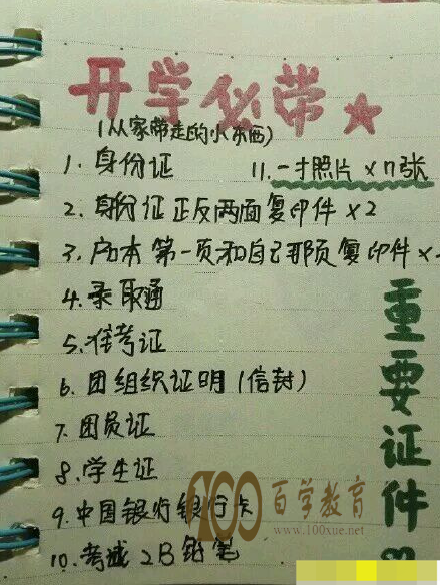 开学必带
(从家带走的小东西)
1. 身份证
11. 一寸照片 ×n张
2. 身份证正反两面复印件 ×2
3. 户口本第一页和自己那页复印件 ×
4. 录取通
5. 准考证
6. 团组织证明(信封)
7. 团员证
8. 学生证
9. 中国银行银行卡
10. 考试2B铅笔
重要证件
100百学教育
www.100xue.net